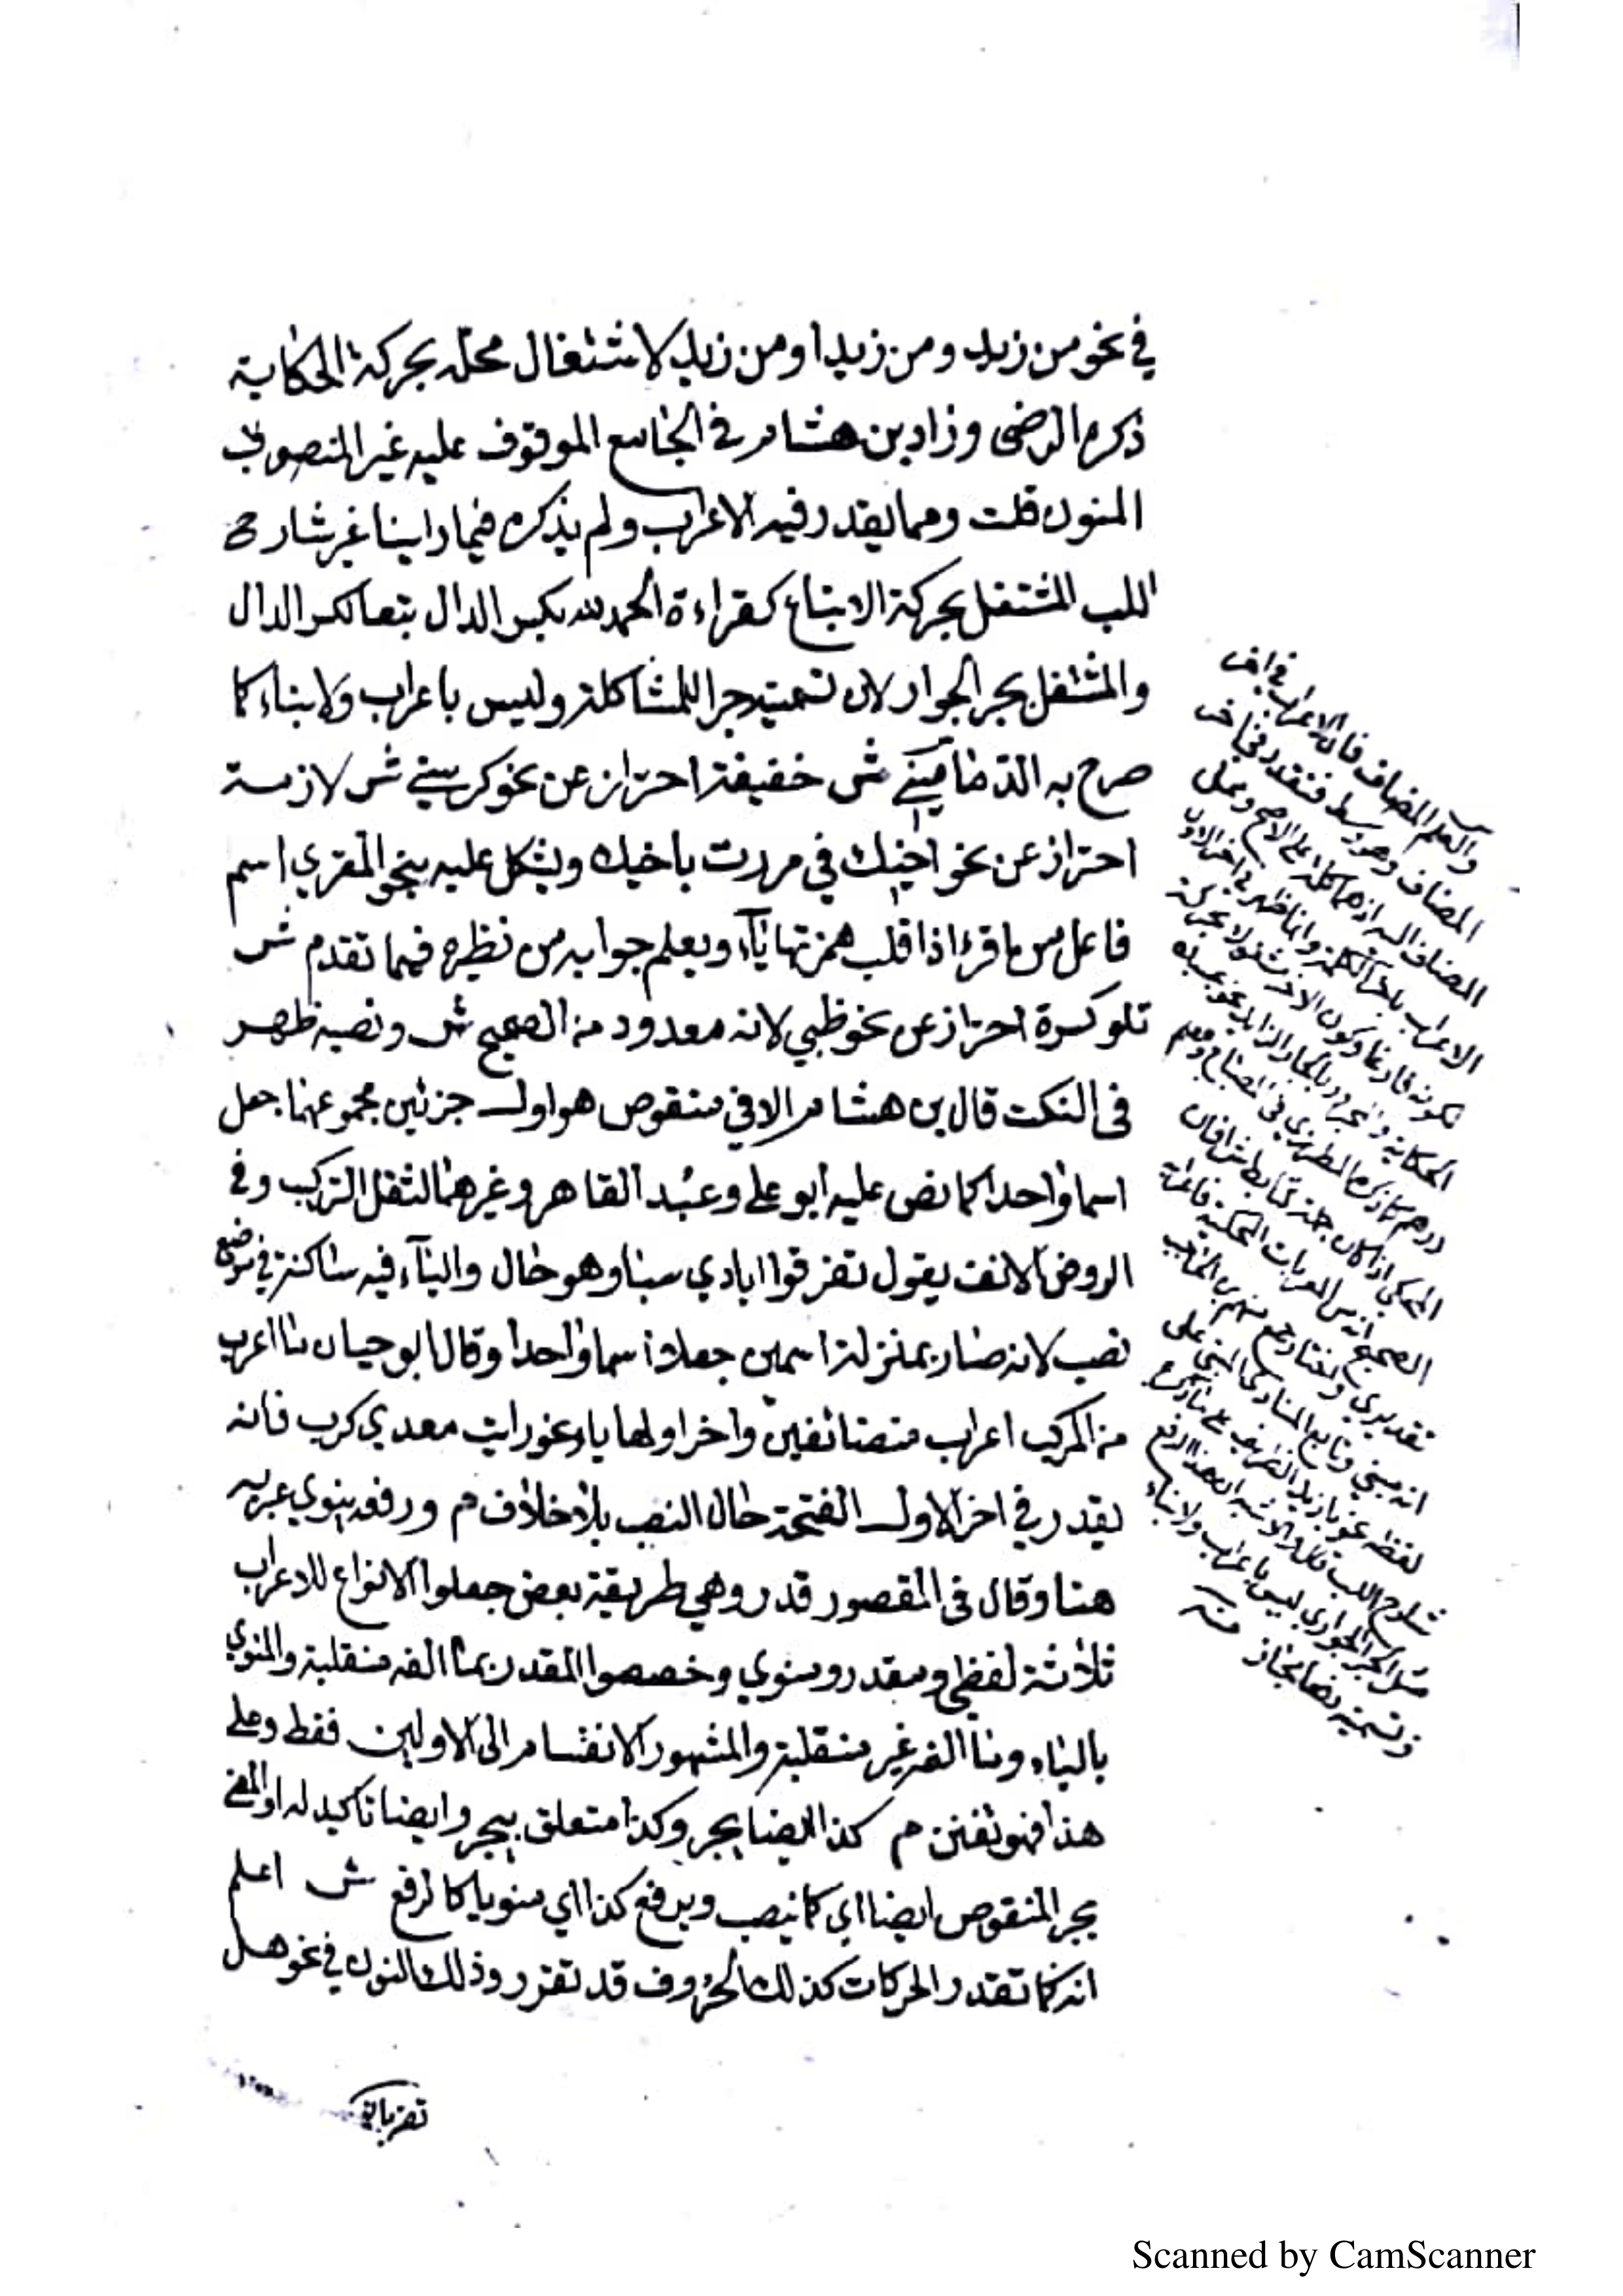 في نحو من زيد ومن زيدا ومن زيد لاشتغال محله بحركة الحكاية
ذكره الرضى وزاد بن هشام في الجامع الموقوف عليه غير المنصوب
المنون قلت ومما يقدر فيه الاعراب ولم يذكره فيما راينا غير شارح
اللب المشتغل بحركة الاتباع كقراءة الحمد لله بكسر الدال تبعا لكسر الدال
والمشتغل بجر الجوار لان تسميته جرا للمشاكلة وليس باعراب ولا بناء كما
صرح به الدمامينى ش خفيفة احتراز عن نحو كرسي ش لازمة
احتراز عن نحو اخيك في مررت باخيك ويشكل عليه بنحو المقري اسم
فاعل من ما قرء اذا قلب همزتها ياء ويعلم جوابه من نظيره فيما تقدم ش
تلو كسرة احتراز عن نحو ظبي لانه معدود من الصحيح ش ونصبه ظهر
في النكت قال بن هشام الا في منقوص هو اول جزئين مجموعهما جعل
اسما واحدا كما نص عليه ابو علي وعبد القاهر وغيرهما لثقل التركيب وفي
الروض الانف يقول تفرقوا ايادي سبا وهو حال والياء فيه ساكنة في موضع
نصب لانه صار بمنزلة اسمين جعلا اسما واحدا وقال ابو حيان ما اعرب
من المركب اعراب متضائفين واخر اولها ياء نحو رايت معدي كرب فانه
يقدر في اخر الاول الفتحة حال النصب بلا خلاف م ورفعه ينوي عبر به
هنا وقال في المقصور قدر وهي طريقة بعض جعلوا الانواع للاعراب
ثلاثة لفظي ومقدر ومنوي وخصصوا المقدر بما الفه منقلبة والمنوي
بالياء وما الفه غير منقلبة والمشهور الانقسام الى الاولين فقط وعلى
هذا فهو تفنن م كذا ايضا يجر وكذا متعلق بيجر وايضا تاكيد له او المعنى
يجر المنقوص ايضا اي كما ينصب ويرفع كذا اي منويا كالرفع ش اعلم
انه كما تقدر الحركات كذلك الحروف قد تقدر وذلك النون في نحو هل
والعلم المضاف فان الاعراب في اخر
المضاف وهو وسط فنقدر في اخر
المضاف اليه اذ هما كلمة على الاصح وعلى
الاعراب باخر الكلمة وانما ظهر في اخر الاول
الحكاية والمجرور بالجار الزايد نحو بحسبك
درهم كما ذكره المطرزي في المصباح
المحكى اذا كان جملة
الصحيح انه من المعربات المحكية
تقديري
انه مبني وتابع المنادى المبني على
لفظه نحو يا زيد الظريف على ما ذكره
شارح اللب قال والاشبه ان هذا الرفع
مثل الجر الجواري ليس باعراب ولا بناء
وتسميته رفعا مجاز منه
Scanned by CamScanner